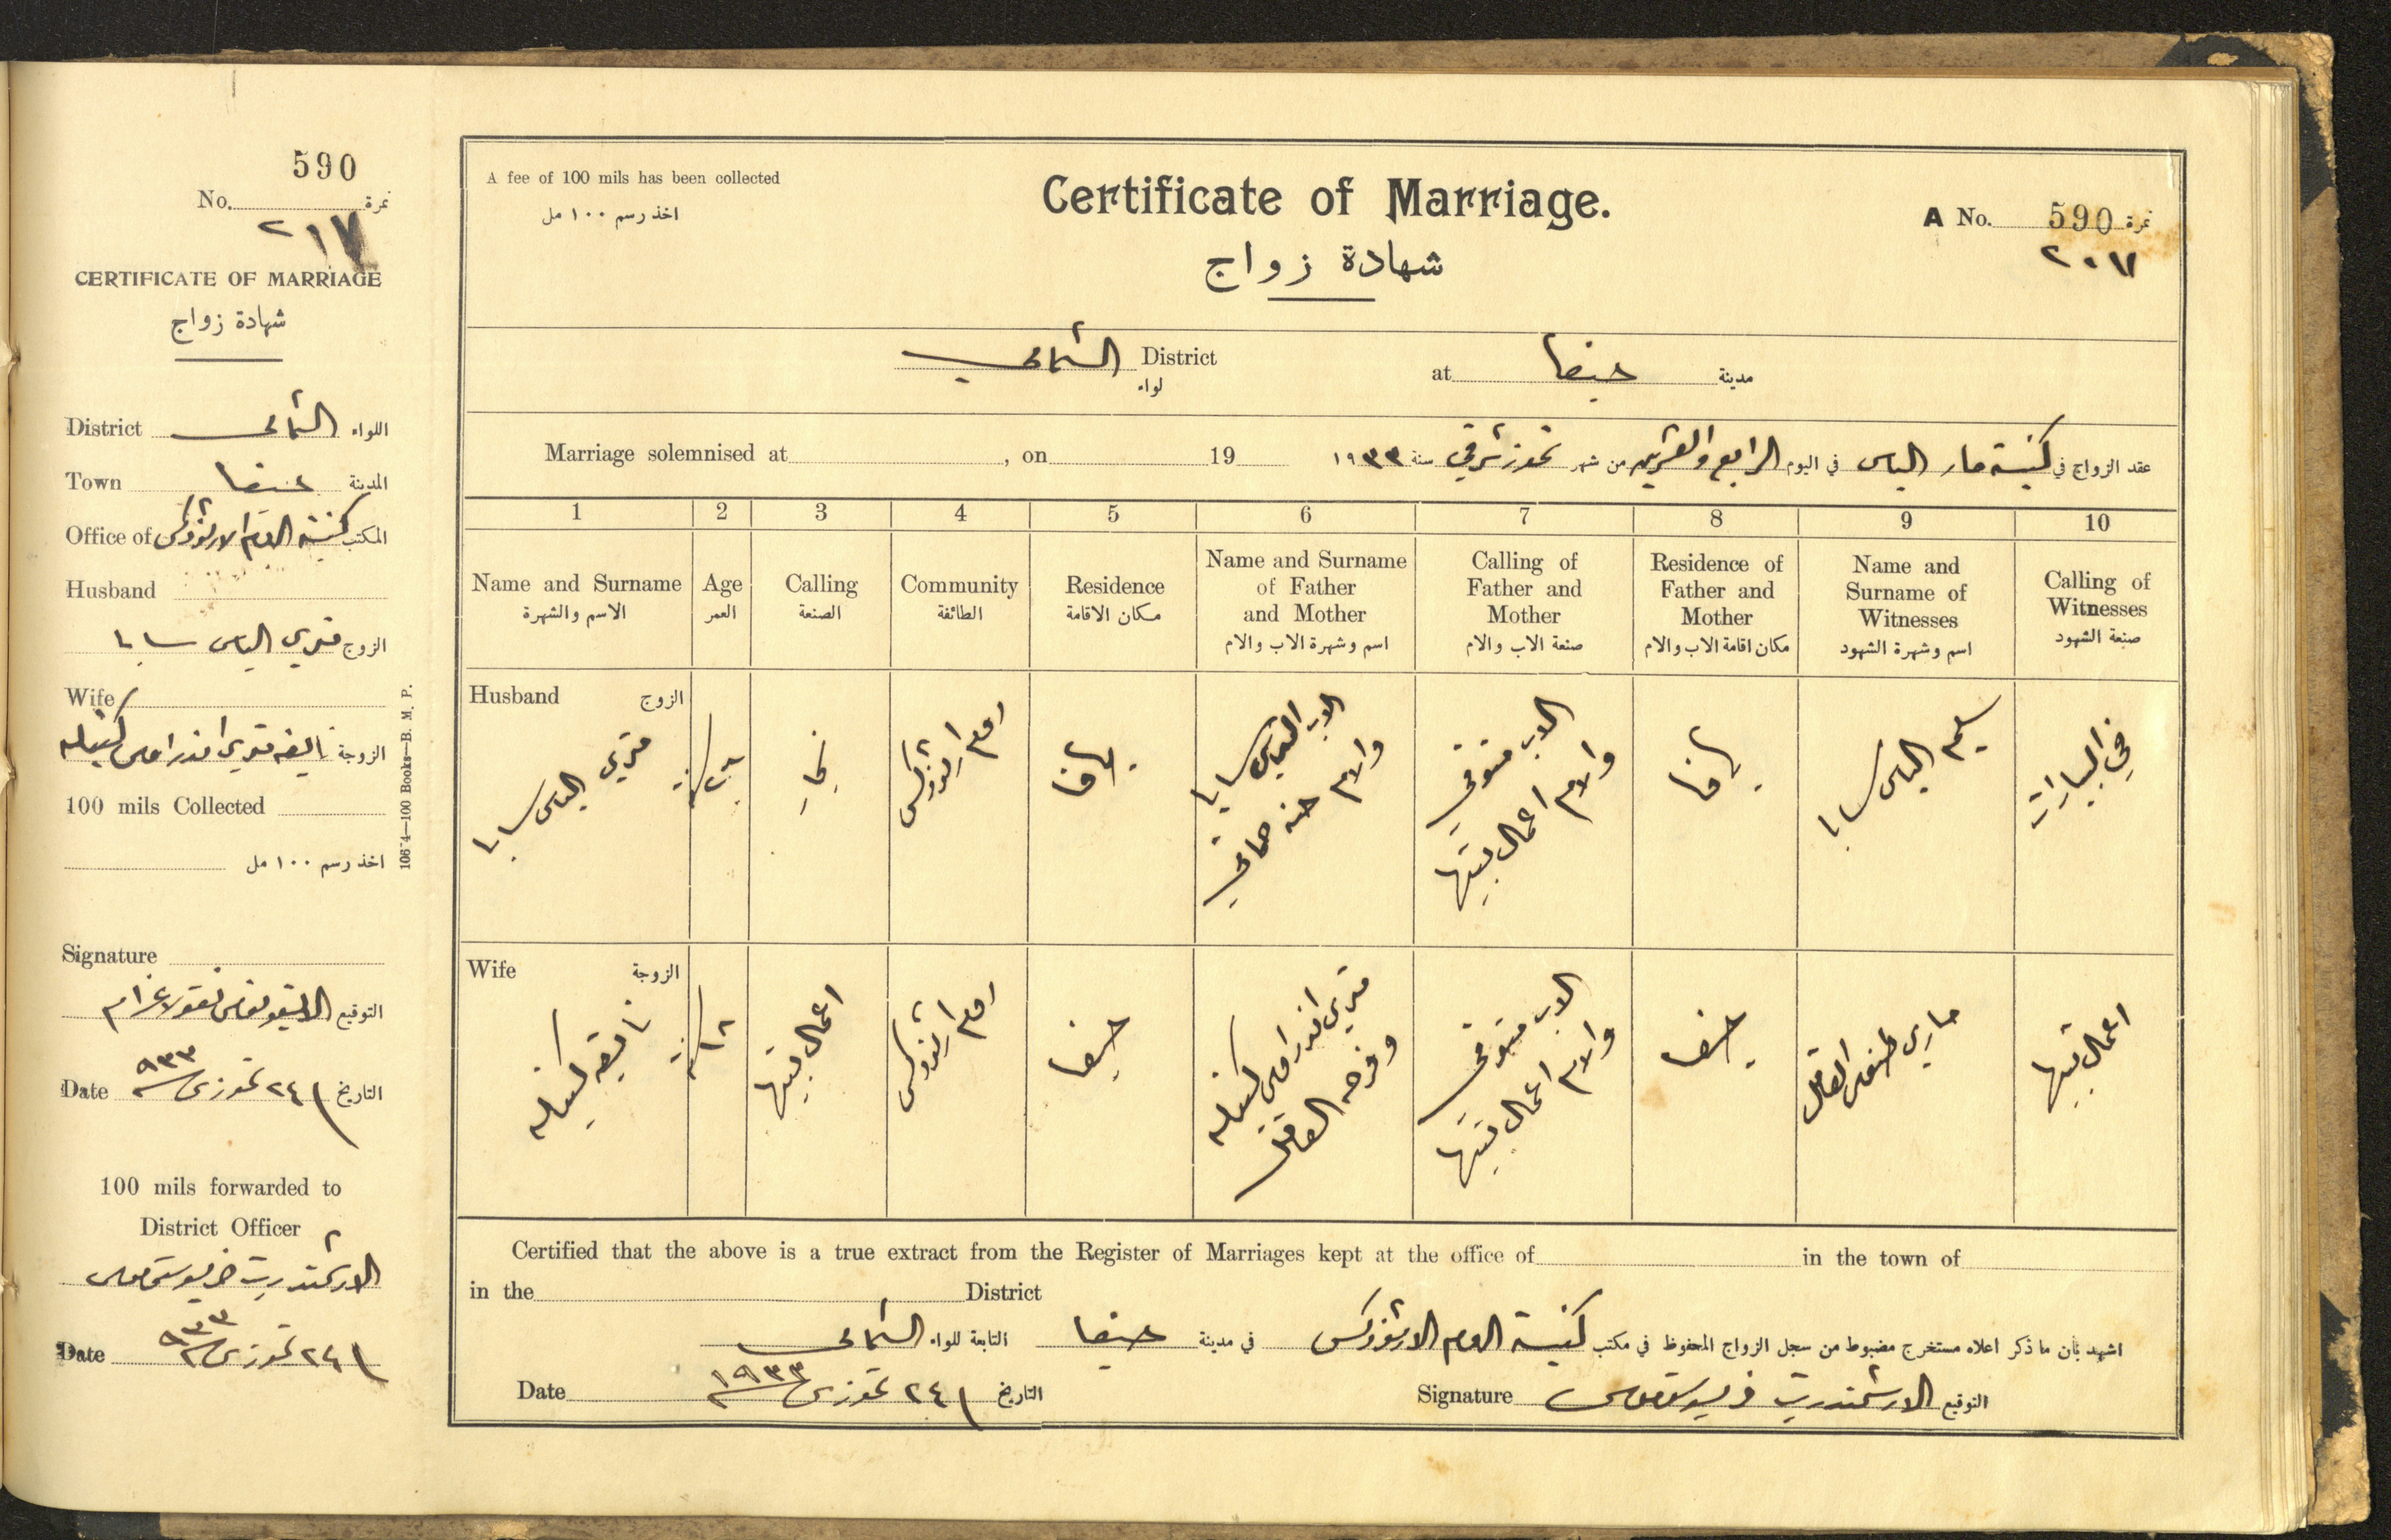 590
No. نمرة
٢١٧
CERTIFICATE OF MARRIAGE
شهادة زواج
District الشمالي اللواء
Town حيفا المدينة
Office of كنيسة الروم الارثوذكس المكتب
Husband
الزوج متري الياس سابا
Wife
الزوجة نايفه متري اندراوس
100 mils Collected
اخذ رسم ١٠٠ مل
Signature
التوقيع نقولا
Date ٢٤ تموز ش ٩٣٣ التاريخ
100 mils forwarded to
District Officer
الارشمندريت
Date ٢٤ تموز ش ٩٣٣
106 4—100 Books—B. M. P.
A fee of 100 mils has been collected
اخذ رسم ١٠٠ مل
Certificate of Marriage.
شهادة زواج
A No. 590 نمرة
٢٠٧
الشمالي District
لواء
at حيفا مدينة
Marriage solemnised at , on 19
عقد الزواج في كنيسة مار الياس في اليوم الرابع والعشرين من شهر تموز شرقي سنة ١٩٣٣
1 2 3 4 5 6 7 8 9 10
Name and Surname
الاسم والشهرة
Age
العمر
Calling
الصنعة
Community
الطائفة
Residence
مكان الاقامة
Name and Surname
of Father
and Mother
اسم وشهرة الاب والام
Calling of
Father and
Mother
صنعة الاب والام
Residence of
Father and
Mother
مكان اقامة الاب والام
Name and
Surname of
Witnesses
اسم وشهرة الشهود
Calling of
Witnesses
صنعة الشهود
Husband الزوج
متري الياس سابا
نجار
روم ارثوذكس
يافا
الاب الياس سابا
والام حنه
الاب متوفي
والام اعمال بيتها
يافا
سليم الياس سابا
في البيارات
Wife الزوجة
نايفه
١٨ سنة
اعمال بيتها
روم ارثوذكس
حيفا
متري اندراوس
وفرحه
الاب متوفي
والام اعمال بيتها
حيفا
ماري
اعمال بيتها
Certified that the above is a true extract from the Register of Marriages kept at the office of in the town of
in the District
اشهد بأن ما ذكر اعلاه مستخرج مضبوط من سجل الزواج المحفوظ في مكتب كنيسة الروم الارثوذكس في مدينة حيفا التابعة للواء الشمالي
Date ٢٤ تموز ش ١٩٣٣ التاريخ
Signature الارشمندريت التوقيع